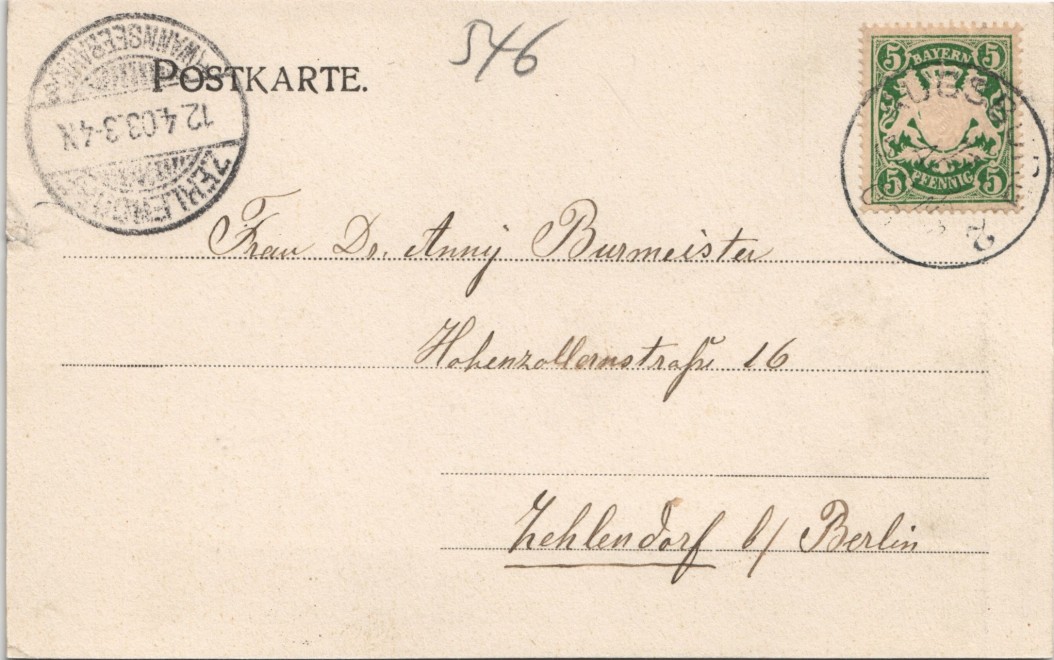 546
POSTKARTE.
WANNSEEBAHN
12.4.03.3-4N.
ZEHLENDORF
5 BAYERN 5
5 PFENNIG 5
AUGSBURG
2
Frau Dr. Anny Burmeister
Hohenzollernstraße 16
Zehlendorf b/ Berlin